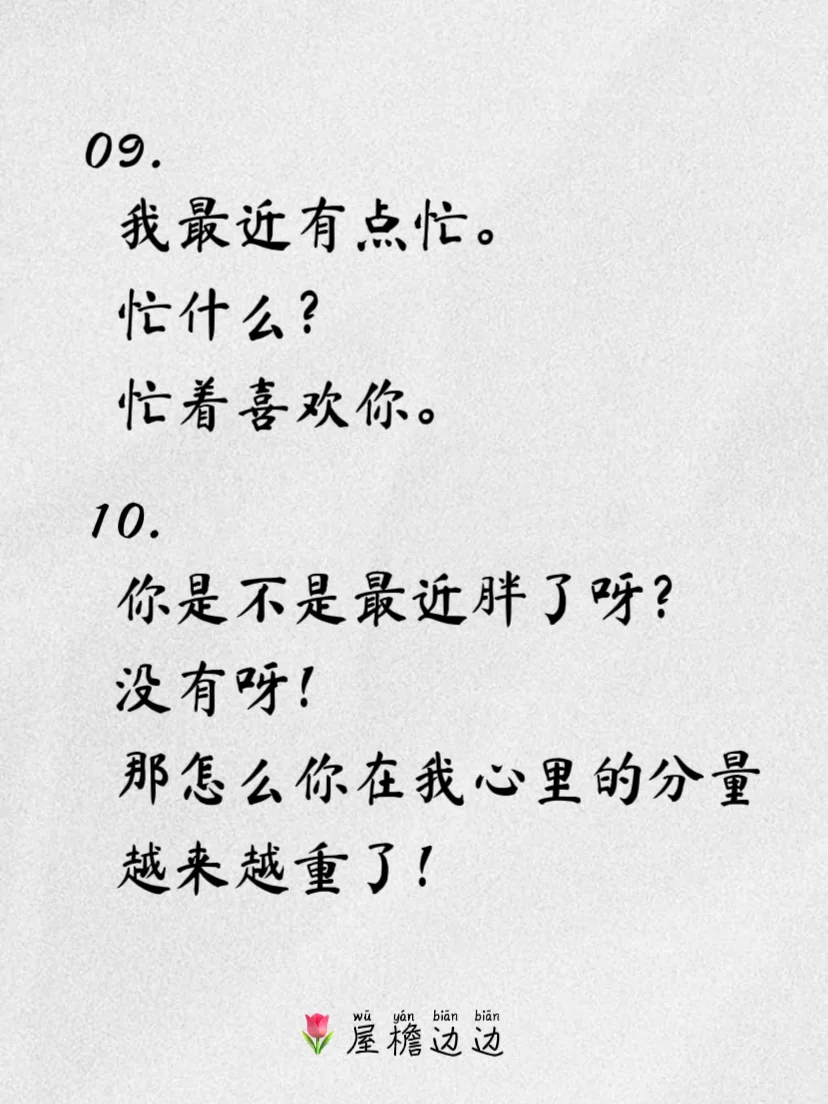 09.
我最近有点忙。
忙什么？
忙着喜欢你。
10.
你是不是最近胖了呀？
没有呀！
那怎么你在我心里的分量
越来越重了！
wū yán biān biān
屋檐边边